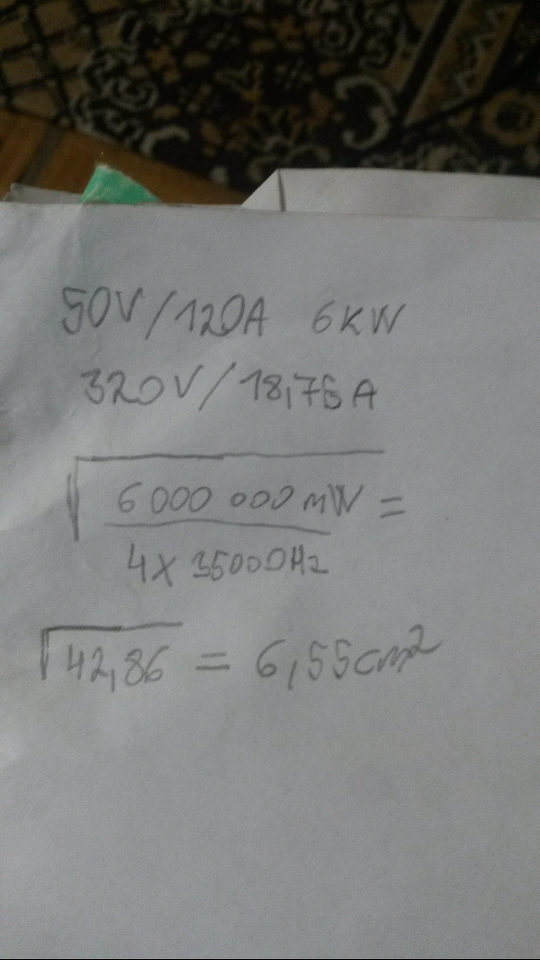 50V/120A 6KW
320V/18,75A
√6000 000mW =
4x 35000Hz
√42,86 = 6,55cm²